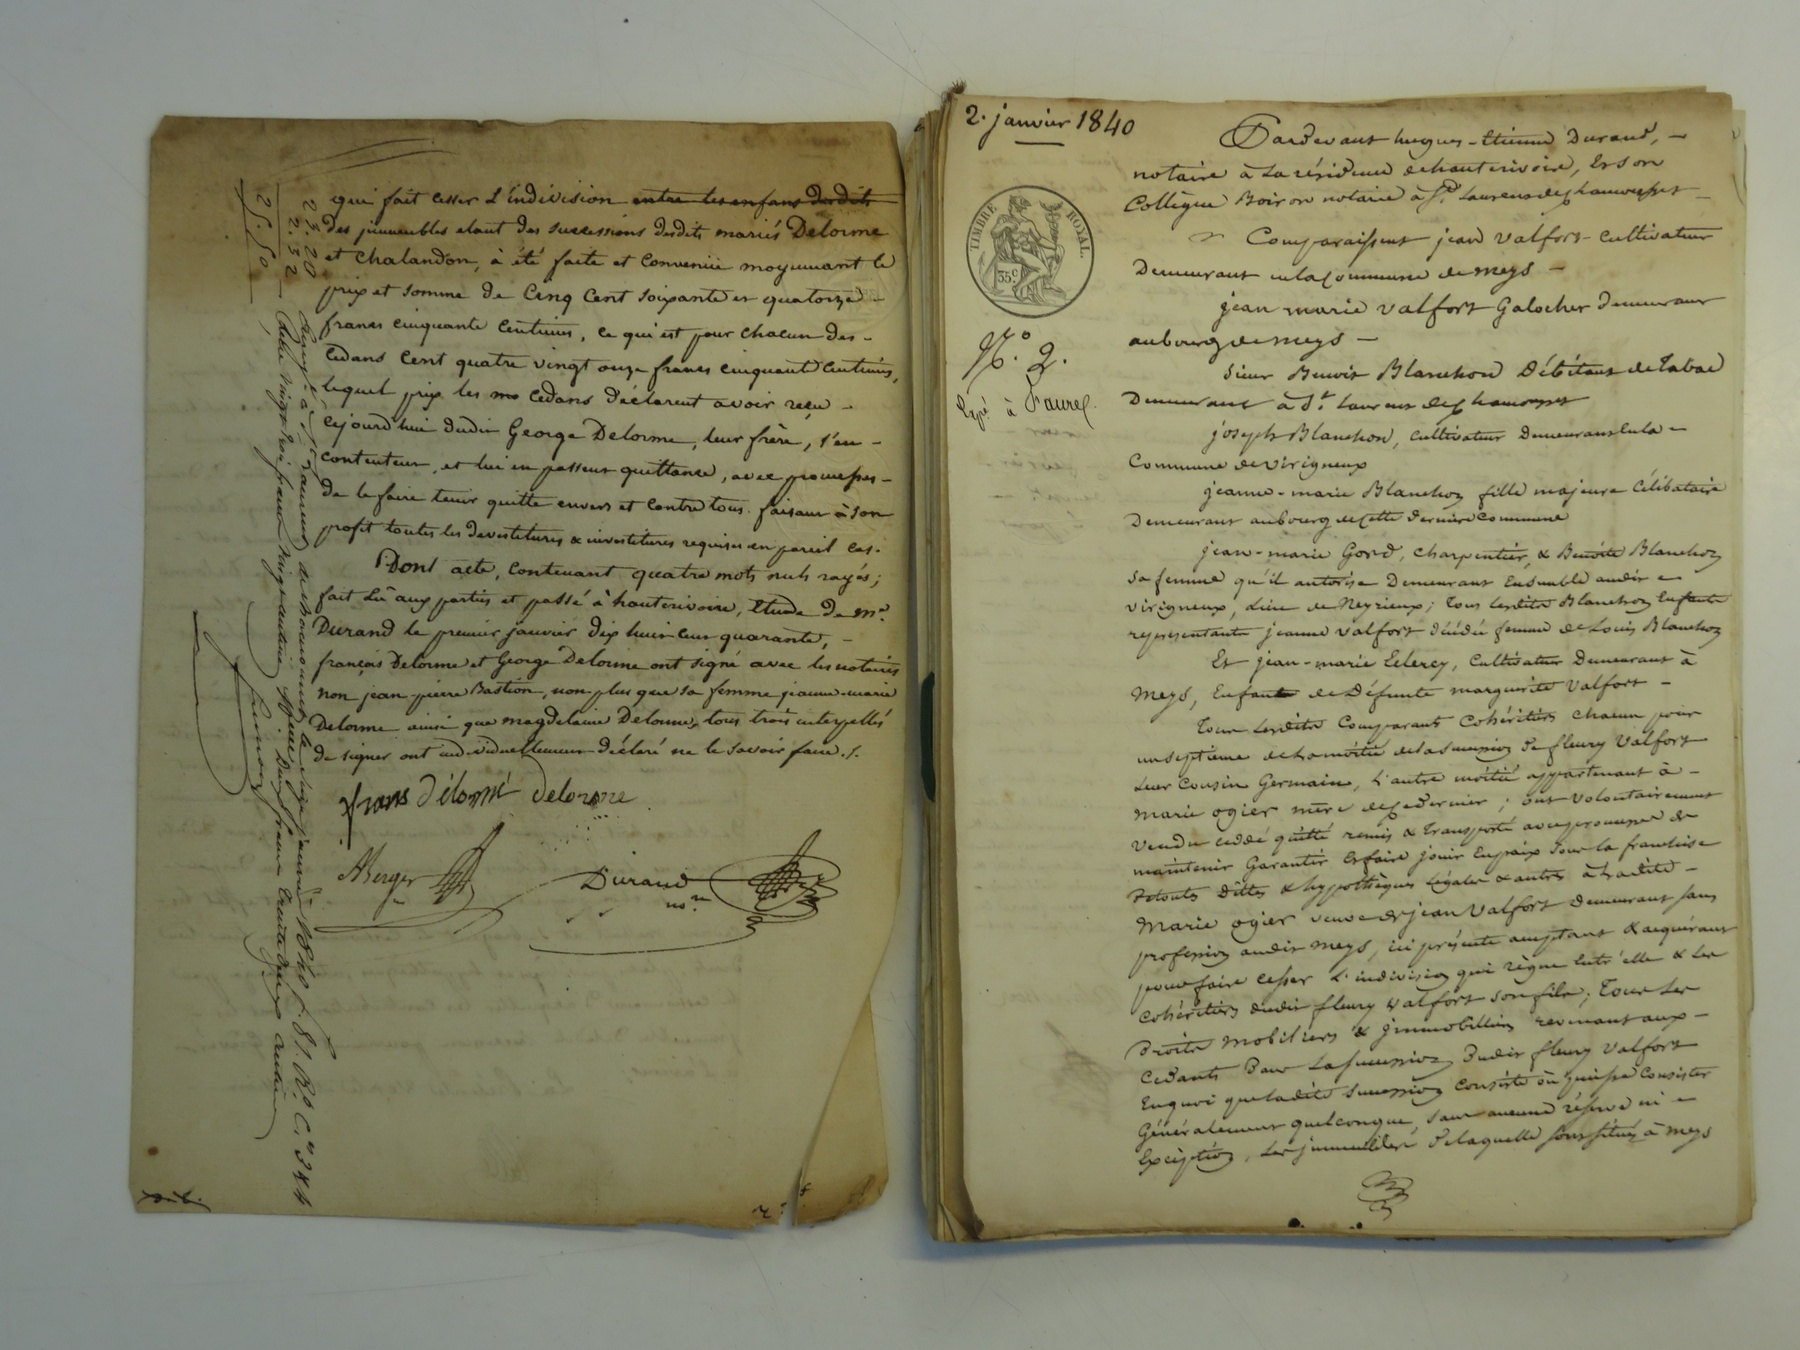 qui fait cesser L'indivision entre les enfans desdits
des jmmeubles etant des successions desdits mariés Delorme
et Chalandon, à été faite et convenüe moyennant le
prix et somme de Cinq Cent Soixante et quatorze -
francs cinquante Centimes, ce qui est pour chacun des -
Cedans Cent quatre vingt onze francs cinquante Centimes,
lequel prix les mo Cedans déclarent avoir reçu -
cejourd'hui dudit George Delorme, leur frère, s'en -
contentent, et lui en passent quittance, avec promesses -
de le faire tenir quitte envers et contre tous. faisant à son
profit toutes les devestitures & investitures requises en pareil cas.
Dont acte, contenant quatre mots nuls rayés;
fait Lû aux parties et passé à hauterivoire, Etude de me.
Durand le premier janvier dix huit cent quarante, -
françois Delorme et George Delorme ont signé avec les notaires
non jean pierre Bastion, non plus que sa femme jeanne-marie
Delorme ainsi que magdelaine Delorme, tous trois interpellés
de signer ont individuellement déclaré ne le savoir faire./.
frans délorme delorme
Berger
Durand
nore
23.20
2.32
25.50
2. janvier 1840
TIMBRE ROYAL.
35c.
N.o 2.
Expé. à Faure
Pardevant hugues-Etienne Durand, -
notaire à La résidence de hauterivoire, Et son
Collègue Boiron notaire à St. Laurens de Chamousset -
Comparaissent jean Valfort cultivateur
Demeurant en la Commune de meys -
jean marie Valfort Galocher demeurant
au bourg de meys -
Sieur Benoit Blanchon Débitant de Tabac
Demeurant à St. Laurens de Chamousset
joseph Blanchon, Cultivateur Demeurant en la -
Commune de Virigneux
jeanne-marie Blanchon fille majeure Célibataire
Demeurant au bourg de Cette dernière Commune
jean-marie Gord, Charpentier, & Benoite Blanchon
Sa femme qu'il autorise Demeurant Ensemble audit -
Virigneux, Lieu de Neyrieux; Tous lesdits Blanchon Enfants
representants jeanne Valfort décédée femme de Louis Blanchon
Et jean-marie Eclercy, Cultivateur Demeurant à
Meys, Enfant de Défunte marguerite Valfort -
Tous lesdits Comparants Cohéritiers chacun pour
un septième de la moitié de la succession de fleury Valfort
Leur Cousin Germain, L'autre moitié appartenant à -
Marie ogier mère de ce dernier; ont Volontairement
Vendu cédé quitté remis & Transporté avec promesse de
maintenir Garantir Et faire jouir En paix Sous la franchise
de toutes Dettes & hypothèques Légales & autres à Ladite -
Marie ogier veuve de jean Valfort demeurant sans
profession audit Meys, ici présente acceptant & acquérant
pour faire cesser L'indivision qui règne Entr'elle & Les
Cohéritiers dudit fleury Valfort son fils; Tous Les
Droits Mobiliers & jmmobiliers revenant aux -
Cédants Dans La succession Dudit fleury Valfort
En quoi que ladite succession consiste ou puisse Consister
Généralement quelconque, sans aucune réserve ni -
Exception, Les jmmeubles de laquelle sont situés à Meys